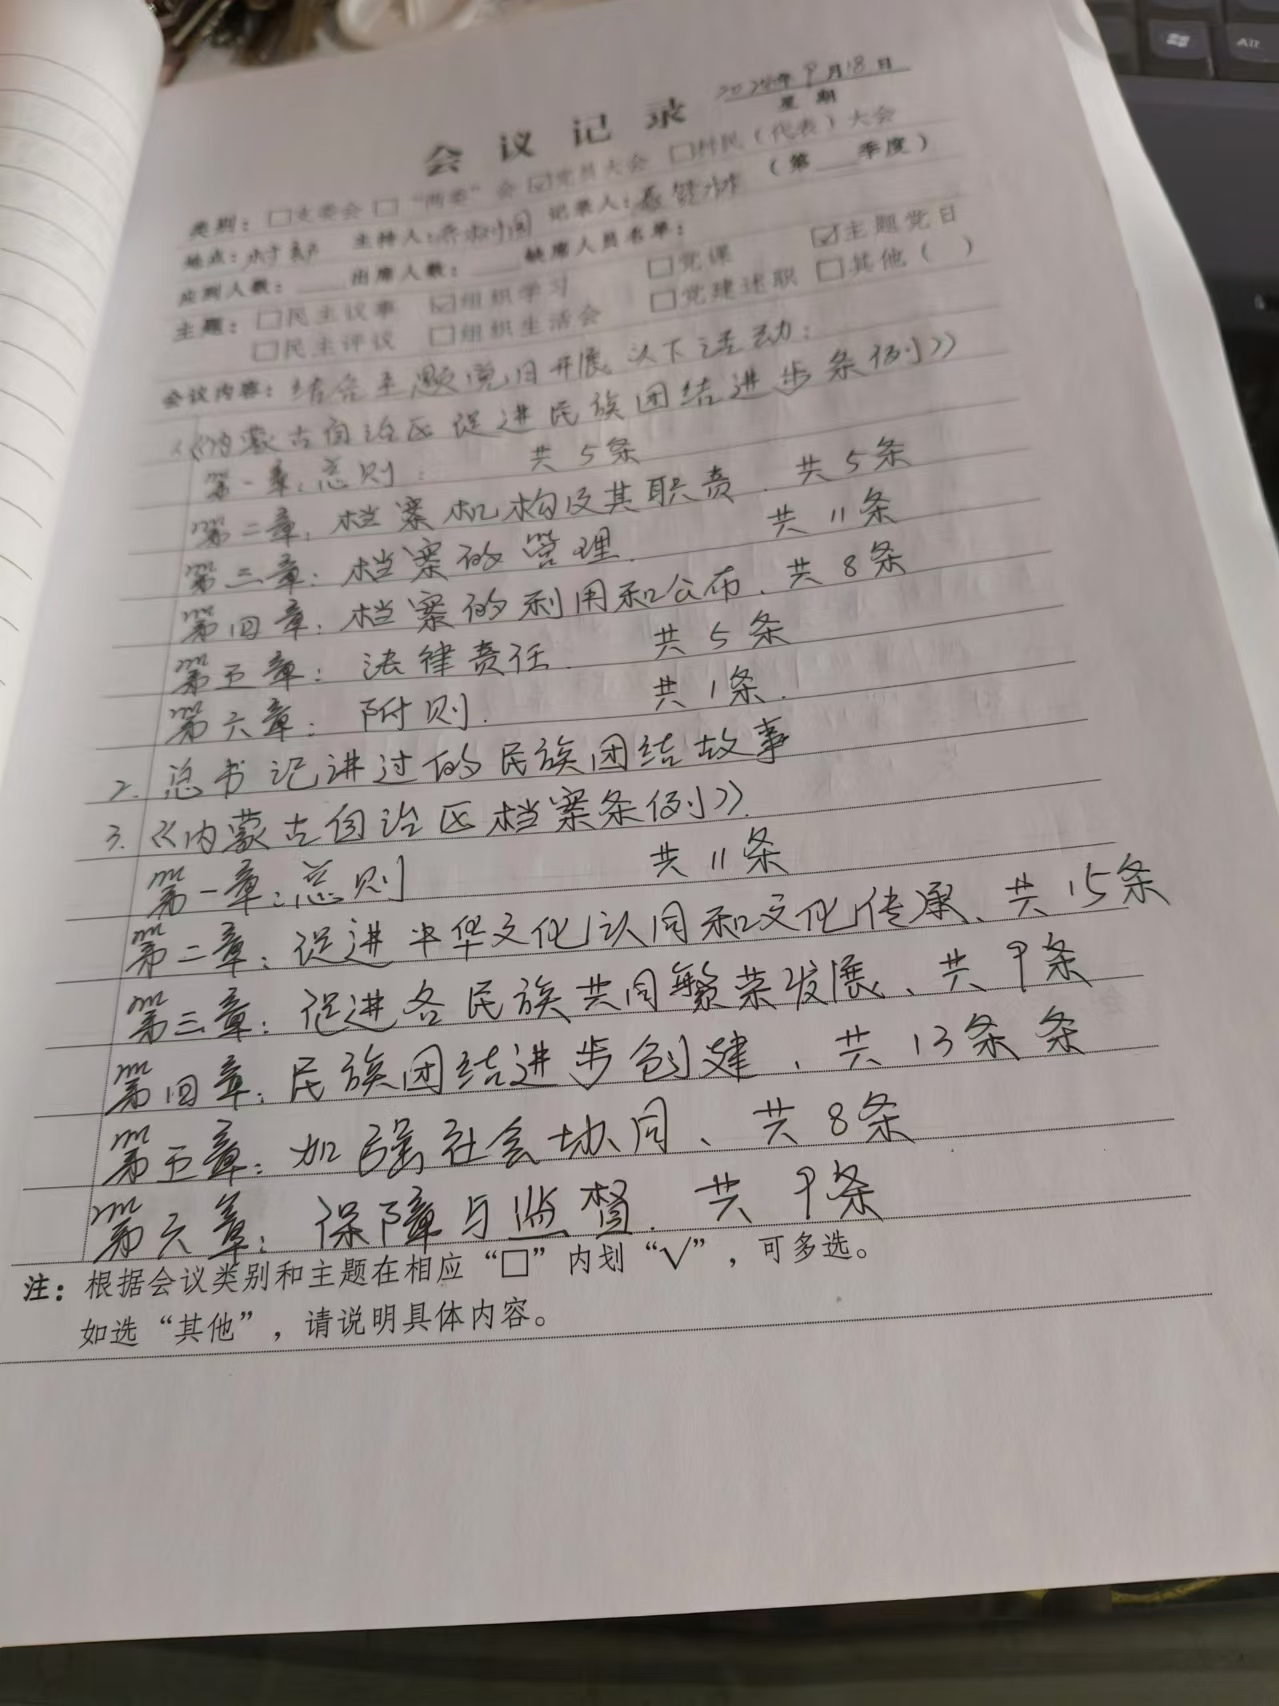 会议记录 2024年9月18日
星期
类别：□支委会 □“两委”会 ☑党员大会 □村民（代表）大会
地点：村部 主持人： 记录人： （第 季度）
应到人数： 出席人数： 缺席人员名单：
主题：□民主议事 ☑组织学习 □党课 ☑主题党日
□民主评议 □组织生活会 □党建述职 □其他（ ）
会议内容：结合主题党日开展以下活动：
1.《内蒙古自治区促进民族团结进步条例》
第一章：总则． 共5条
第二章：档案机构及其职责．共5条
第三章：档案的管理． 共11条
第四章：档案的利用和公布．共8条
第五章：法律责任． 共5条
第六章：附则． 共1条．
2.总书记讲过的民族团结故事
3.《内蒙古自治区档案条例》．
第一章：总则 共11条
第二章：促进中华文化认同和文化传承、共15条
第三章：促进各民族共同繁荣发展、共9条
第四章：民族团结进步创建、共13条条
第五章：加强社会协同、共8条
第六章：保障与监督．共9条
注：根据会议类别和主题在相应“□”内划“√”，可多选。
如选“其他”，请说明具体内容。